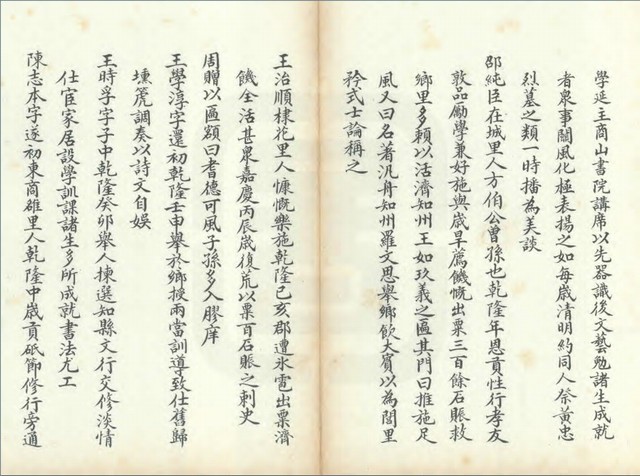 學延主商山書院講席以先器識後文藝勉諸生成就
者衆事關風化極表揚之如每歲清明約同人祭黃忠
烈墓之類一時播為美談
邵純臣在城里人方伯公曾孫也乾隆年恩貢性行孝友
敦品勵學兼好施與歲旱薦饑慨出粟三百餘石賑救
鄉里多賴以活濟知州王如玖義之匾其門曰推施足
風又曰名著汎舟知州羅文思舉鄉飲大賓以為閭里
矜式士論稱之
王治順棣花里人慷慨樂施乾隆己亥郡遭氷雹出粟濟
饑全活甚衆嘉慶丙辰歲復荒以粟百石賑之刺史
周贈以匾額曰耆德可風子孫多入膠庠
王學淳字還初乾隆壬申舉於鄉授兩當訓導致仕舊歸
壎箎調奏以詩文自娛
王時孚字子中乾隆癸卯舉人揀選知縣文行交修淡情
仕宦家居設學訓課諸生多所成就書法尤工
陳志本字遂初東商雒里人乾隆中歲貢砥節修行旁通